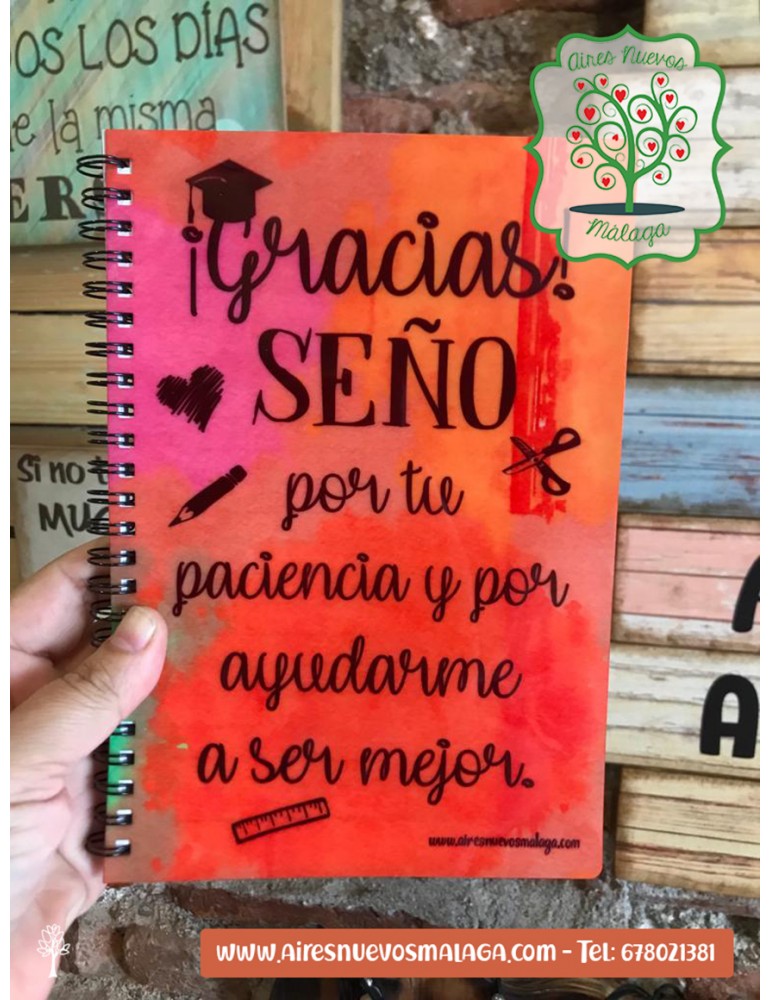 OS LOS DÍAS
e la misma
ER
Aires Nuevos
Málaga
¡Gracias!
SEÑO
por tu
paciencia y por
ayudarme
a ser mejor.
www.airesnuevosmalaga.com
Si no t
MUC
A
A
www.airesnuevosmalaga.com - Tel: 678021381